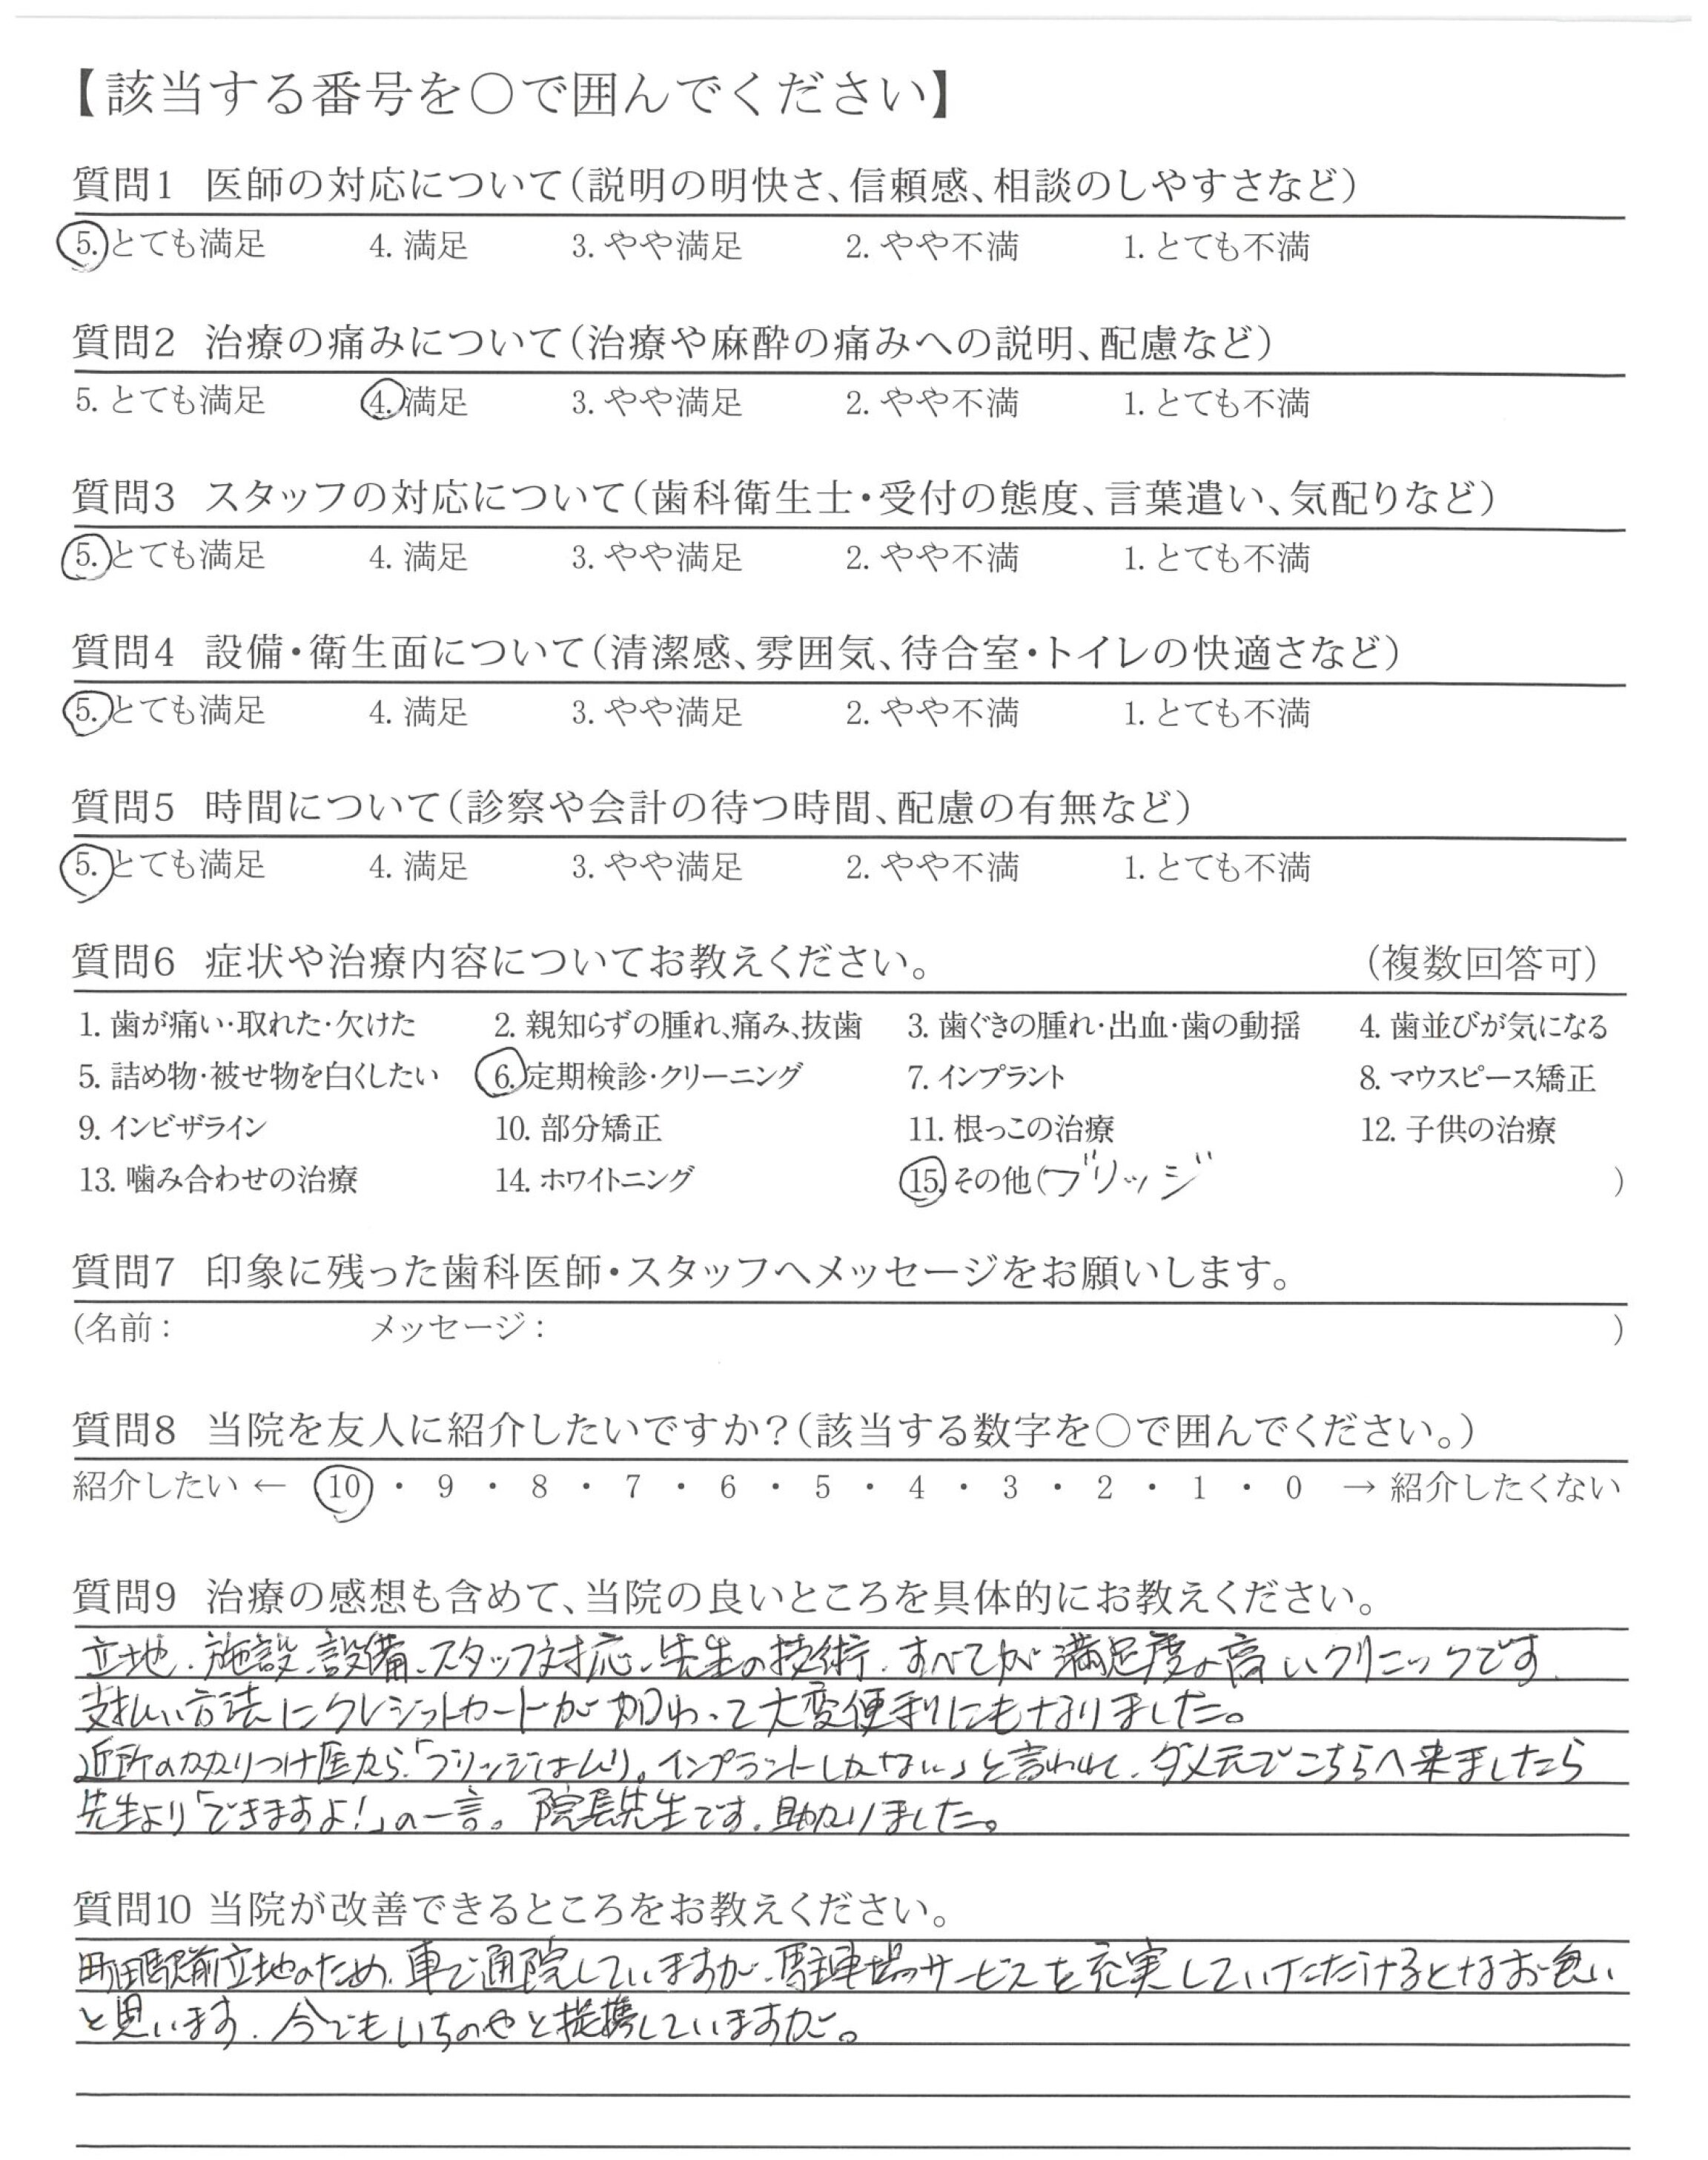 【該当する番号を○で囲んでください】
質問1 医師の対応について(説明の明快さ、信頼感、相談のしやすさなど)
5. とても満足 4. 満足 3. やや満足 2. やや不満 1. とても不満
質問2 治療の痛みについて(治療や麻酔の痛みへの説明、配慮など)
5. とても満足 4. 満足 3. やや満足 2. やや不満 1. とても不満
質問3 スタッフの対応について(歯科衛生士・受付の態度、言葉遣い、気配りなど)
5. とても満足 4. 満足 3. やや満足 2. やや不満 1. とても不満
質問4 設備・衛生面について(清潔感、雰囲気、待合室・トイレの快適さなど)
5. とても満足 4. 満足 3. やや満足 2. やや不満 1. とても不満
質問5 時間について(診察や会計の待つ時間、配慮の有無など)
5. とても満足 4. 満足 3. やや満足 2. やや不満 1. とても不満
質問6 症状や治療内容についてお教えください。 (複数回答可)
1. 歯が痛い・取れた・欠けた 2. 親知らずの腫れ、痛み、抜歯 3. 歯ぐきの腫れ・出血・歯の動揺 4. 歯並びが気になる
5. 詰め物・被せ物を白くしたい 6. 定期検診・クリーニング 7. インプラント 8. マウスピース矯正
9. インビザライン 10. 部分矯正 11. 根っこの治療 12. 子供の治療
13. 噛み合わせの治療 14. ホワイトニング 15. その他(ブリッジ )
質問7 印象に残った歯科医師・スタッフへメッセージをお願いします。
(名前: メッセージ: )
質問8 当院を友人に紹介したいですか?(該当する数字を○で囲んでください。)
紹介したい ← 10 ・ 9 ・ 8 ・ 7 ・ 6 ・ 5 ・ 4 ・ 3 ・ 2 ・ 1 ・ 0 → 紹介したくない
質問9 治療の感想も含めて、当院の良いところを具体的にお教えください。
立地、施設、設備、スタッフ対応、先生の技術、すべてが満足度の高いクリニックです。
支払い方法にクレジットカードが加わって大変便利にもなりました。
近所のかかりつけ医から「ブリッジはムリ。インプラントしかない」と言われて、ダメ元でこちらへ来ましたら
先生より「できますよ!」の一言。院長先生です。助かりました。
質問10 当院が改善できるところをお教えください。
町田駅前立地のため、車で通院していますが、駐車場のサービスを充実していただけるとなお良い
と思います。今でもいちのやと提携していますが。